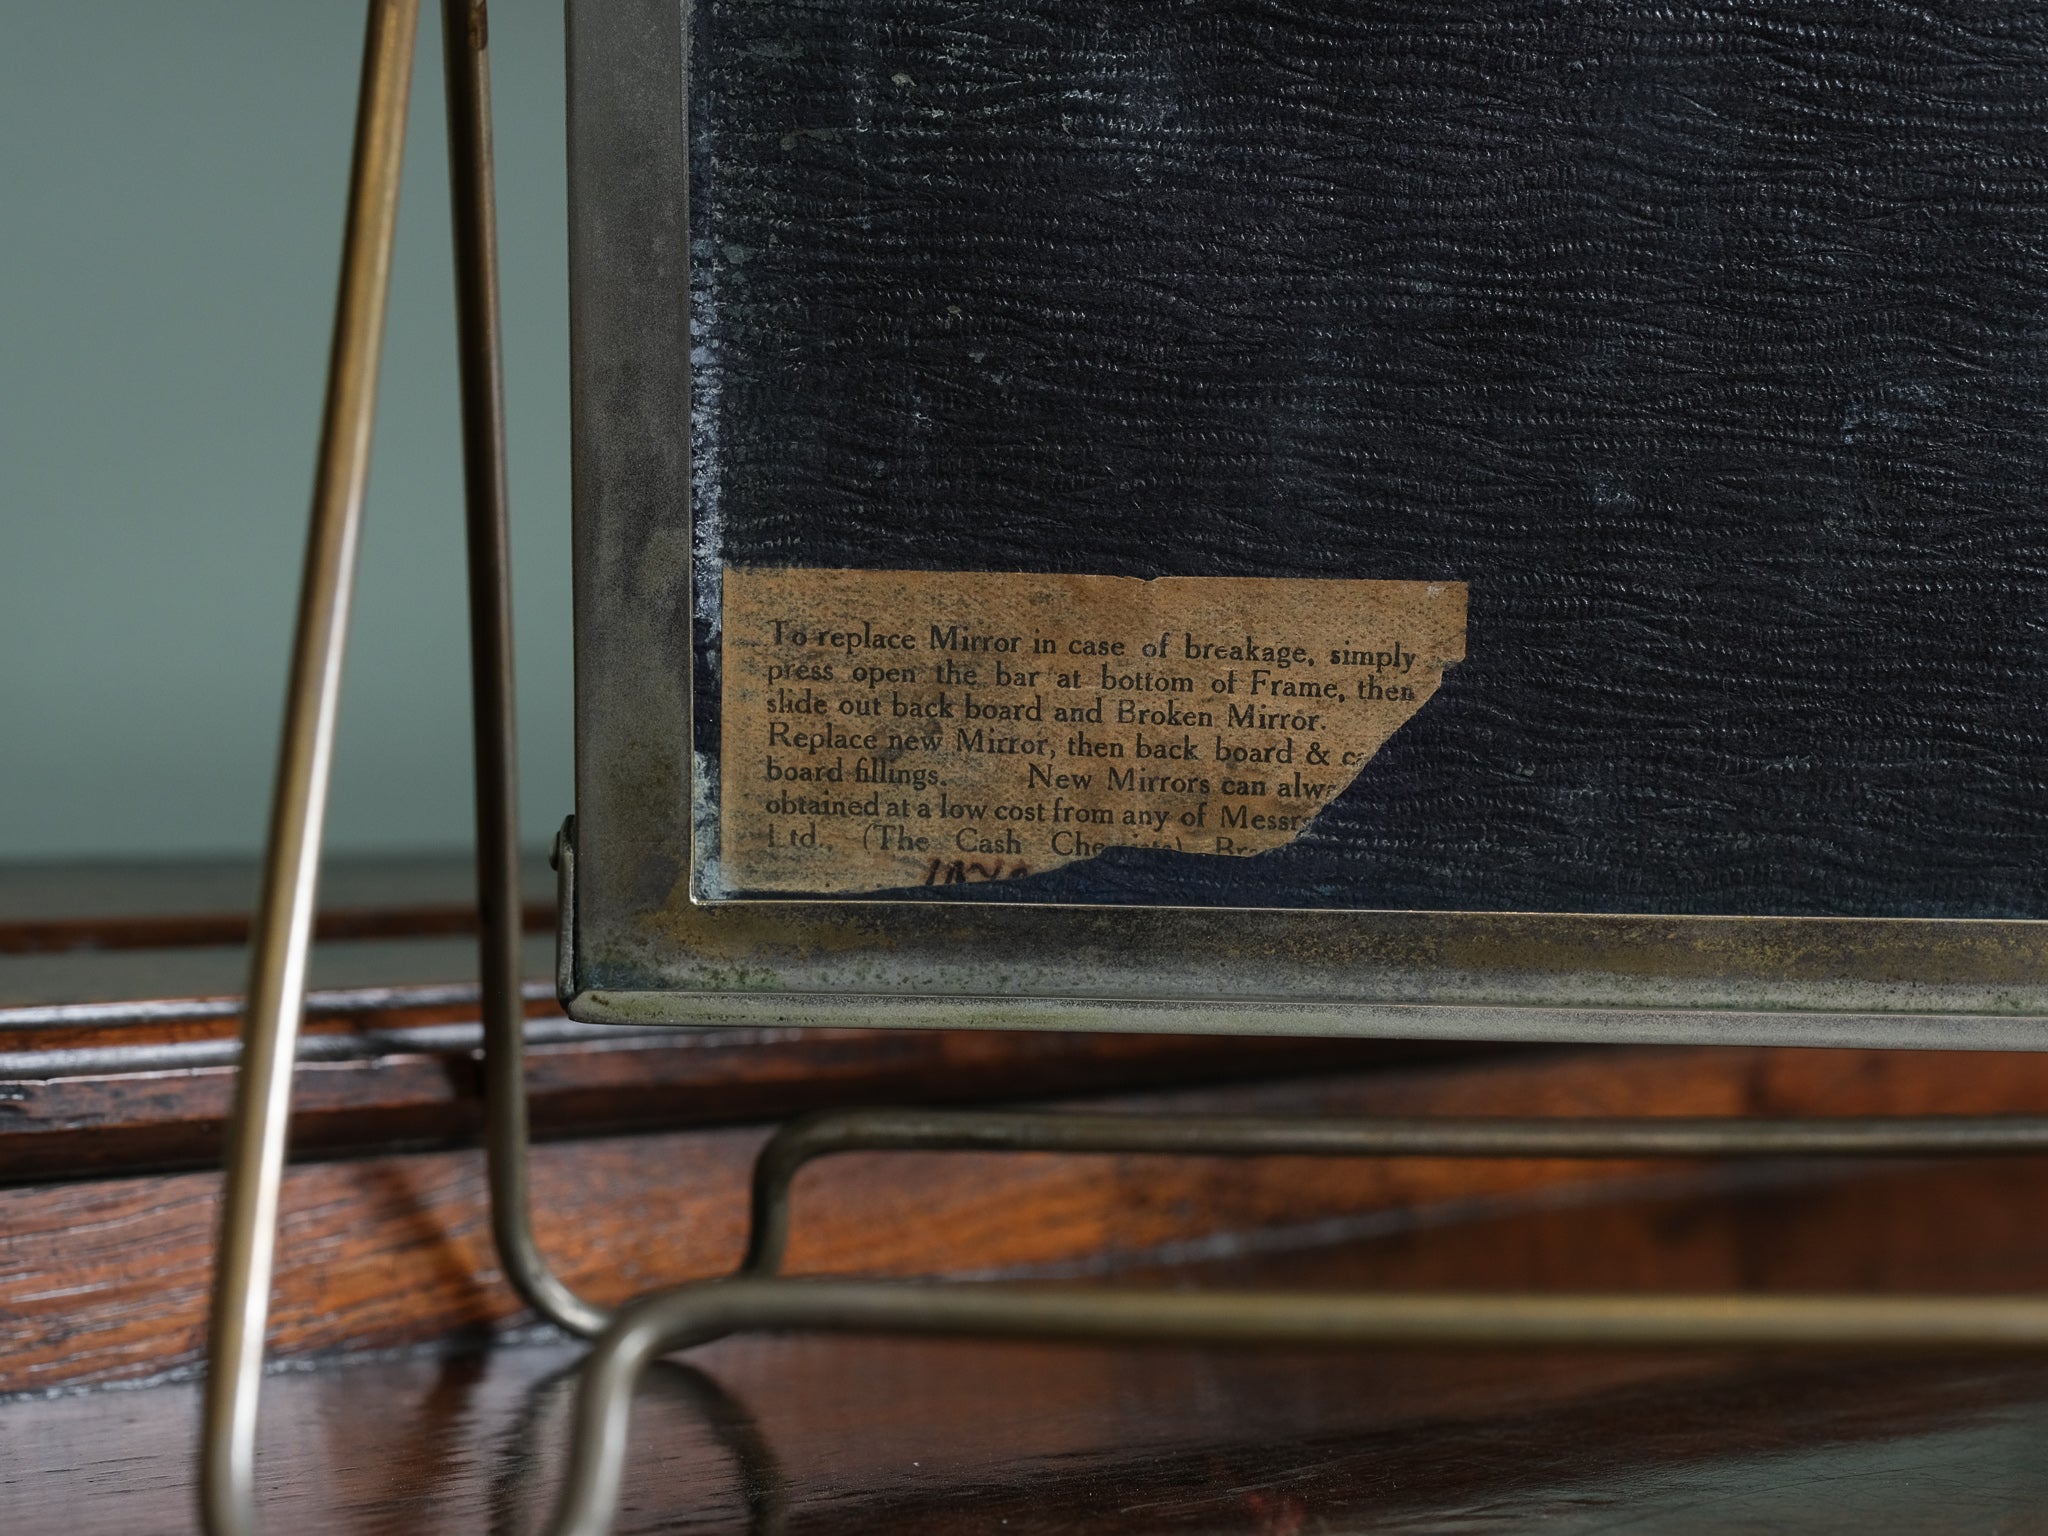 To replace Mirror in case of breakage, simply
press open the bar at bottom of Frame, then
slide out back board and Broken Mirror.
Replace new Mirror, then back board &
board fillings. New Mirrors can
obtained at a low cost from any of Messrs
Ltd., (The Cash Chemists)